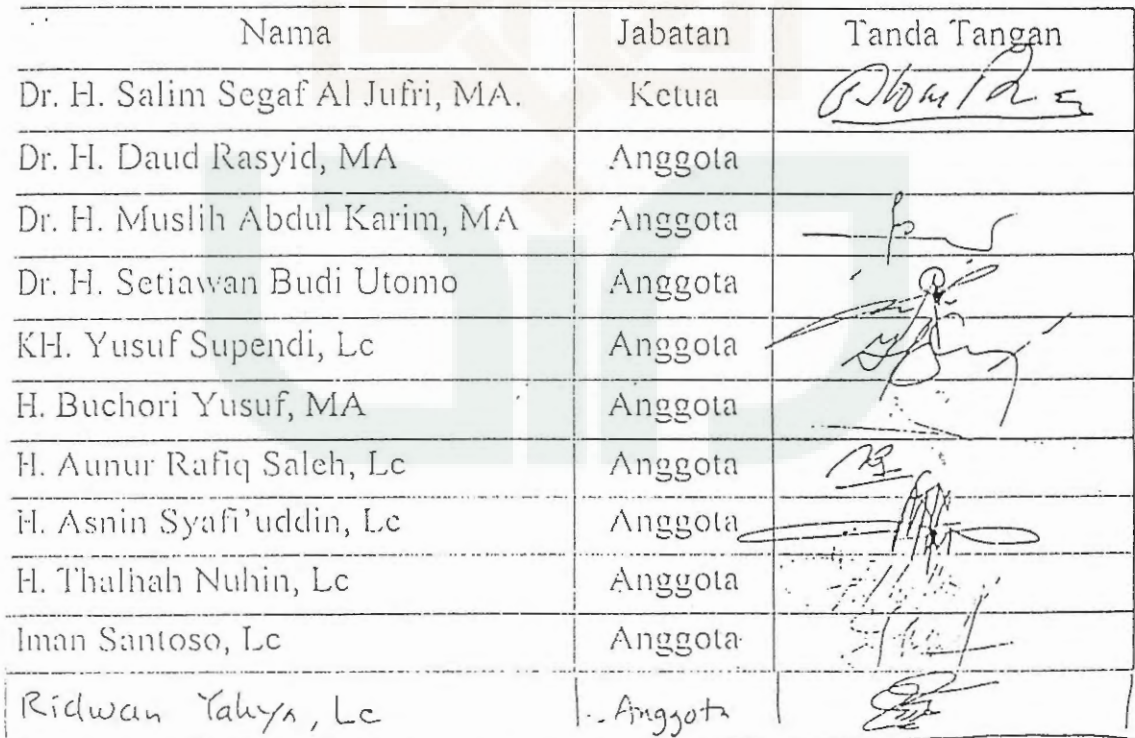 Nama Jabatan Tanda Tangan
Dr. H. Salim Segaf Al Jufri, MA. Ketua
Dr. H. Daud Rasyid, MA Anggota
Dr. H. Muslih Abdul Karim, MA Anggota
Dr. H. Setiawan Budi Utomo Anggota
KH. Yusuf Supendi, Lc Anggota
H. Buchori Yusuf, MA Anggota
H. Aunur Rafiq Saleh, Lc Anggota
H. Asnin Syafi'uddin, Lc Anggota
H. Thalhah Nuhin, Lc Anggota
Iman Santoso, Lc Anggota
Ridwan Yahya, Lc Anggota